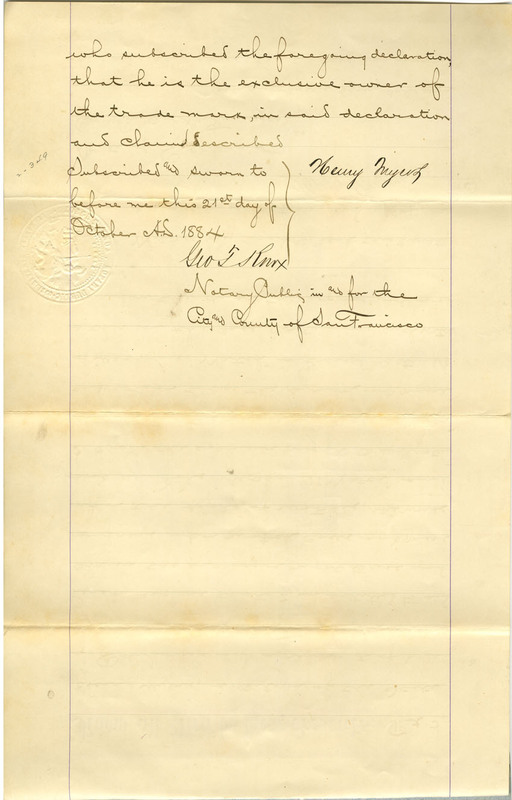 who subscribed the foregoing declaration,
that he is the exclusive owner of
the trade mark, in said declaration
and claim described
Subscribed & sworn to
before me this 21st day of
October A.D. 1884
Henry
Geo T Knox
Notary Public in & for the
City & County of San Francisco